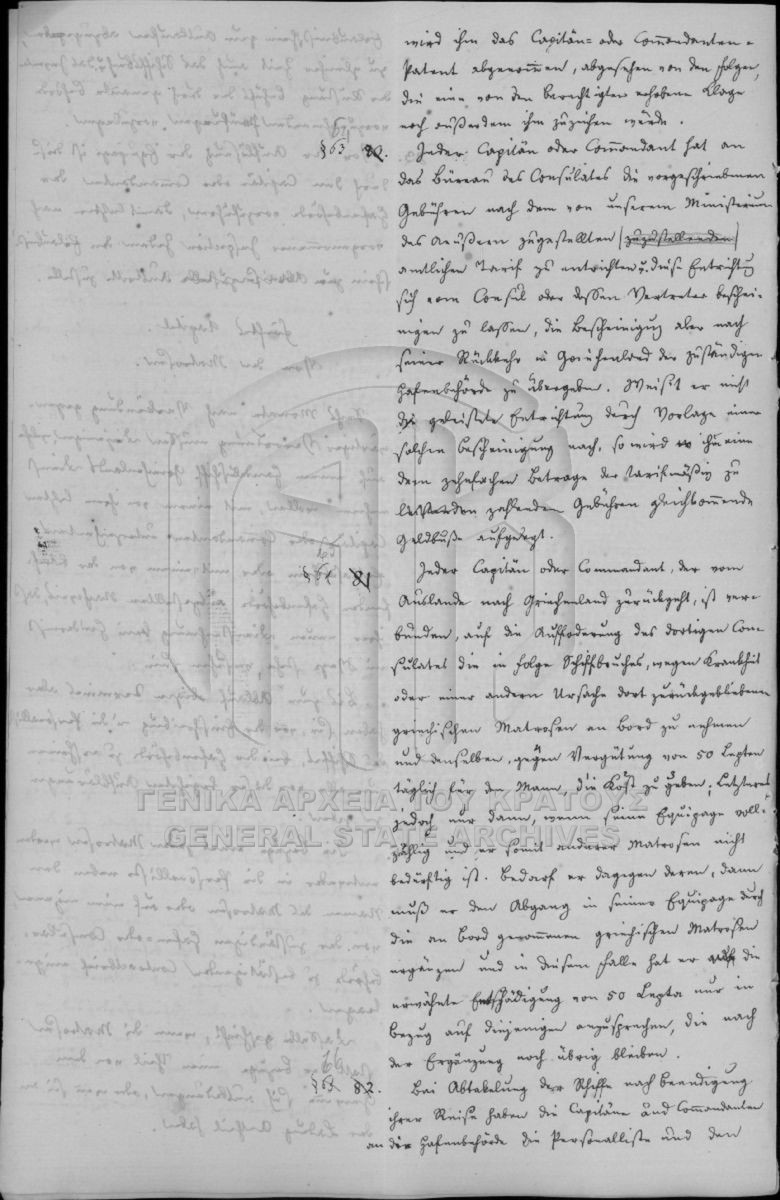 wird ihm das Capitän- oder Commandanten-
Patent abgenommen, abgesehen von den Folgen,
die eine von den Berechtigten erhobene Klage
noch außerdem ihm zuziehen würde.
§ 63 80. Jeder Capitän oder Commandant hat an
das Büreau des Consulates die vorgeschriebenen
Gebühren nach dem von unserem Ministerium
des Aeußern zugestellten (zuzustellenden)
amtlichen Tarif zu entrichten u. diese Entrichtung
sich vom Consul oder dessen Vertreter beschei-
nigen zu lassen, die Bescheinigung aber nach
seiner Rückkehr in Griechenland der zuständigen
Hafenbehörde zu übergeben. Weist er nicht
die geleistete Entrichtung durch Vorlage einer
solchen Bescheinigung nach, so wird ihm eine
dem zehnfachen Betrage der tarifmäßig zu
zahlenden Gebühren gleichkommende
Geldbuße auferlegt.
81 Jeder Capitän oder Commandant, der vom
Auslande nach Griechenland zurückgeht, ist ver-
bunden, auf die Aufforderung des dortigen Con-
sulates die in Folge Schiffbruches, wegen Krankheit
oder einer andern Ursache dort zurückgebliebenen
griechischen Matrosen an Bord zu nehmen
und denselben, gegen Vergütung von 50 Lepten
täglich für den Mann, die Kost zu geben; Letzteres
jedoch nur dann, wenn seine Equipage voll-
zählig und er somit anderer Matrosen nicht
bedürftig ist. Bedarf er dagegen deren, dann
muß er den Abgang in seiner Equipage durch
die an Bord genommenen griechischen Matrosen
ergänzen und in diesem Falle hat er die
erwähnte Entschädigung von 50 Lepta nur in
Bezug auf diejenigen anzusprechen, die nach
der Ergänzung noch übrig bleiben.
82. Bei Abtakelung der Schiffe nach Beendigung
ihrer Reise haben die Capitäne und Commandanten
an die Hafenbehörde die Personalliste und den
ΓΕΝΙΚΑ ΑΡΧΕΙΑ ΤΟΥ ΚΡΑΤΟΥΣ
GENERAL STATE ARCHIVES